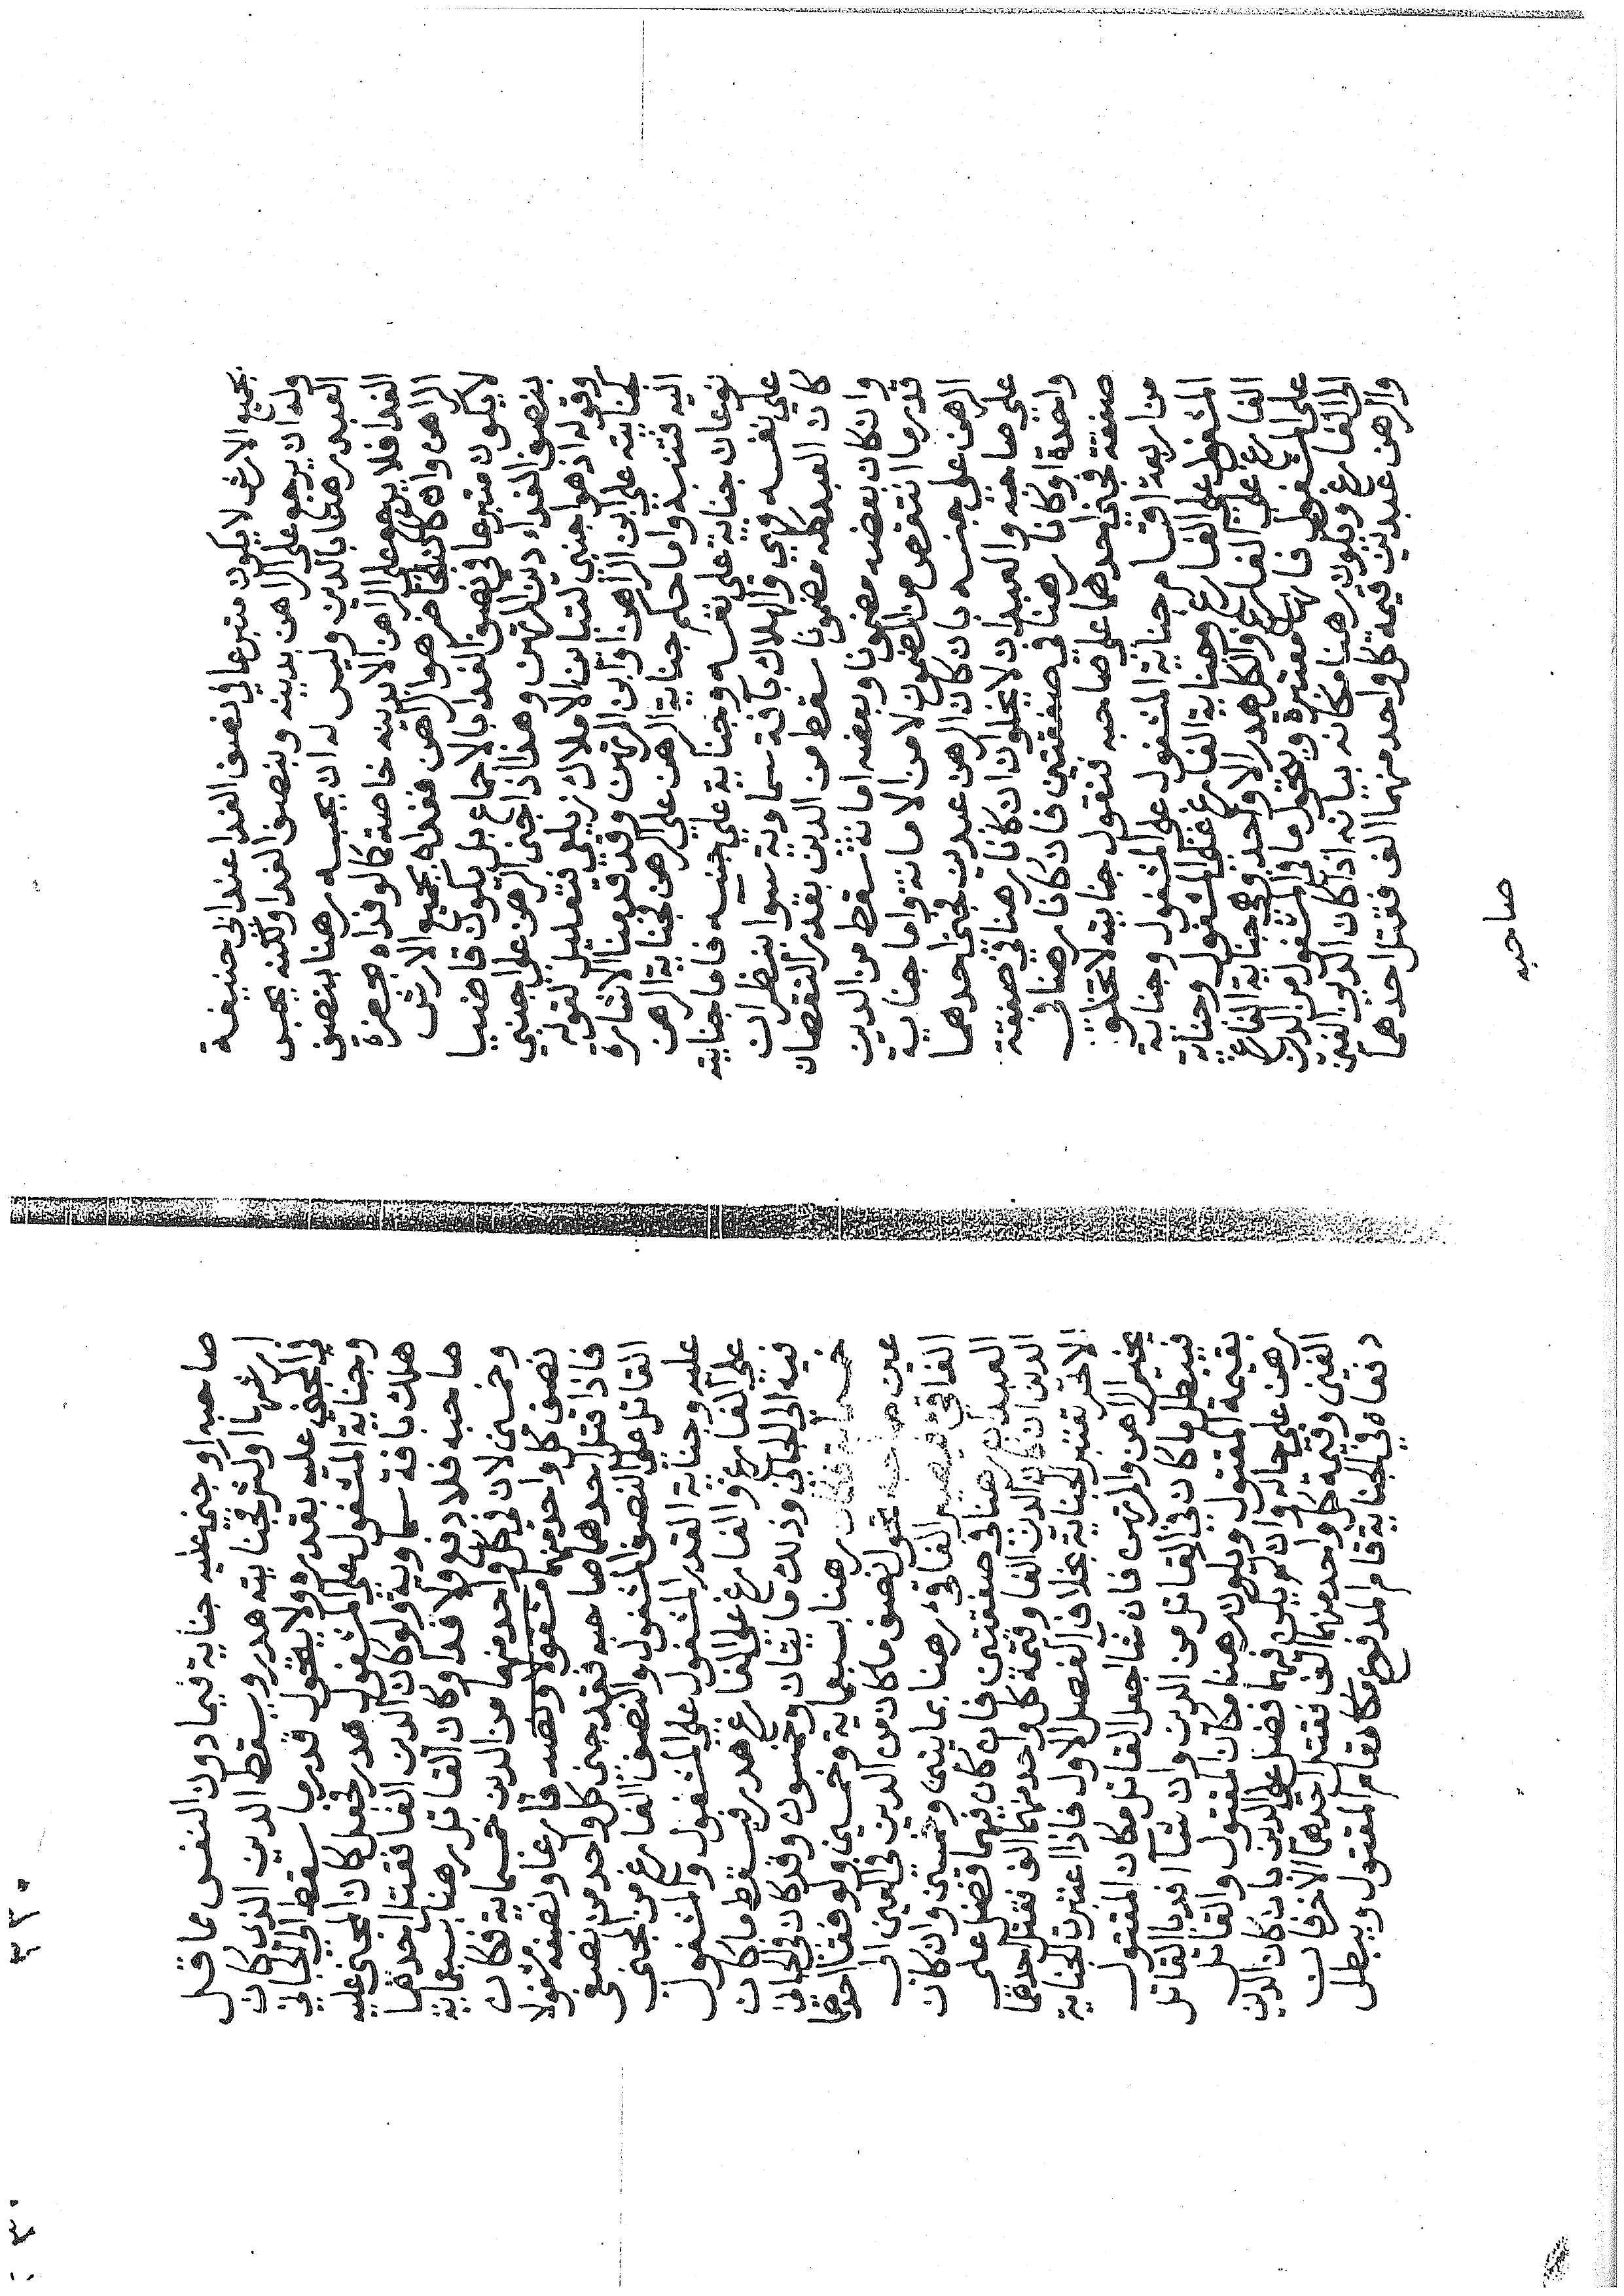 بجميع الارش لا يكون متبرعا في نصف الفدا عند ابي حنيفة
وله ان يرجع على الراهن بدينه وبنصف الفدا ولكنه يحبس
العبد رهنا بالدين وليس له ان يحبسه رهنا بنصف
الفدا فلا يرجع على الراهن الا بدينه خاصة كما لو فداه بحضرة
الراهن وان كان الحاضر هو الراهن ففداه بجميع الارش
لا يكون متبرعا في نصف الفدا بالاجماع بل يكون قاضيا
بنصف الفداء دين المرتهن وهذا اذا جنى الرهن على اجنبي
وقوله اذ هو اجنبي لتباين الاملاك زيلعي فتعليل لقوله
كجنايته على ابن الراهن او ابن المرتهن وقد قدمنا الاشارة
اليه فتنبه واما حكم جناية الرهن على الرهن فجناية الرهن
نوعان جناية على نفسه وجناية على جنسه فاما جناية
على نفسه فهي والهلاك بآفة سماوية سوا ينظر ان
كان العبد كله مضمونا سقط من الدين بقدر النقصان
وان كان بعضه مضمونا وبعضه امانة سقط من الدين
قدر ما انتقص من المضمون لا من الامانة واما جناية
الرهن على جنسه بان كان الرهن عبدين فجنى احدهما
على صاحبه والعبدان لا يخلو ان كانا رهنا في صفقة
واحدة او كانا رهنا في صفقتين فان كانا رهنا في
صفقة فجنى احدهما على صاحبه فنقول جنايته لا تخلو
من اربعة اقسام جناية المشغول على المشغول وجناية
المشغول على الفارغ وجناية الفارغ على المشغول وجناية
الفارغ على الفارغ والكل هدر الا واحد وهي جناية الفارغ
على المشغول فانها معتبرة ويتحول ما في المشغول من الدين
الى الفارغ ويكون رهنا مكانه بيانه اذا كان الدين الفين
والرهن عبدين قيمة كل واحد منهما الف فقتل احدهما
صاحبه
صاحبه او جنى عليه جناية فيما دون النفس مما قل
ارشها او كثر فجنايته هدر ويسقط الدين الذي كان
في المجني عليه بقدره ولا يتحول قدر ما سقط الى الجاني
وجناية المشغول على المشغول هدر فجعل كان المجني عليه
هلك بآفة سماوية ولو كان الدين الفا فقتل احدهما
صاحبه فلا دفع ولا فدا وكان القاتل رهنا بسبعماية
وخمسين لان في كل واحد منهما من الدين خمسماية فكان
نصف كل واحد منهما مشغولا ونصفه فارغا ونصفه مشغولا
فاذا قتل احدهما صاحبه فقد جنى كل واحد من نصفي
القاتل على النصف المشغول والنصف الفارغ من المجني
عليه وجناية القدر المشغول على المشغول والمشغول
على الفارغ والفارغ على الفارغ هدر فيسقط ما كان
فيه الى الجاني وذلك مايتان وخمسون وقد كان في الجاني
خمسماية فكان رهنا بسبعماية وخمسين ولو فقا احدهما
عين صاحبه تحول نصف ما كان من الدين في العين الى
الفاقي فيصير الفاقي رهنا بمايتين وخمسين وان كان
العبدان رهنا في صفقتين فان كان فيهما فضل على
الدين ان كان الدين الفا وقيمة كل واحد منهما الف فقتل احدهما
الاخر تعتبر الجناية بخلاف الفصل الاول فاذا اعتبرت الجناية
يخير الراهن والمرتهن فان شاا جعلا القاتل مكان المقتول
فيبطل ما كان في القاتل من الدين وان شاآ فديا القاتل
بقيمة المقتول ويكون رهنا مكان المقتول والقاتل
رهن على حاله وان لم يكن فيهما فضل على الدين بان كان الدين
الفين وقيمة كل واحد منهما الف فقتل احدهما الاخر فان
دفعاه في الجناية قام المدفوع مكانه مقام المقتول ويبطل